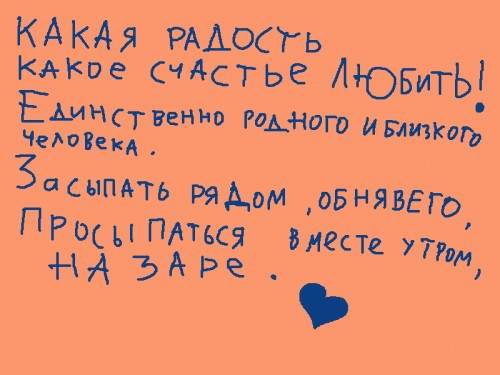 КАКАЯ РАДОСТЬ
КАКОЕ СЧАСТЬЕ ЛЮБИТЬ!
ЕДИНСТВЕННО РОДНОГО И БЛИЗКОГО
ЧЕЛОВЕКА.
ЗАСЫПАТЬ РЯДОМ, ОБНЯВЕГО,
ПРОСЫПАТЬСЯ ВМЕСТЕ УТРОМ,
НА ЗАРЕ.